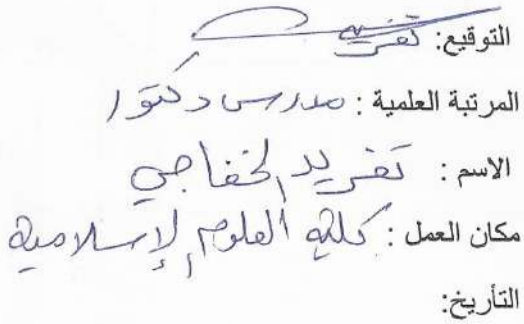 التوقيع: تغريد
المرتبة العلمية : مدرس دكتور
الاسم : تغريد الخفاجي
مكان العمل : كلية العلوم الإسلامية
التأريخ: